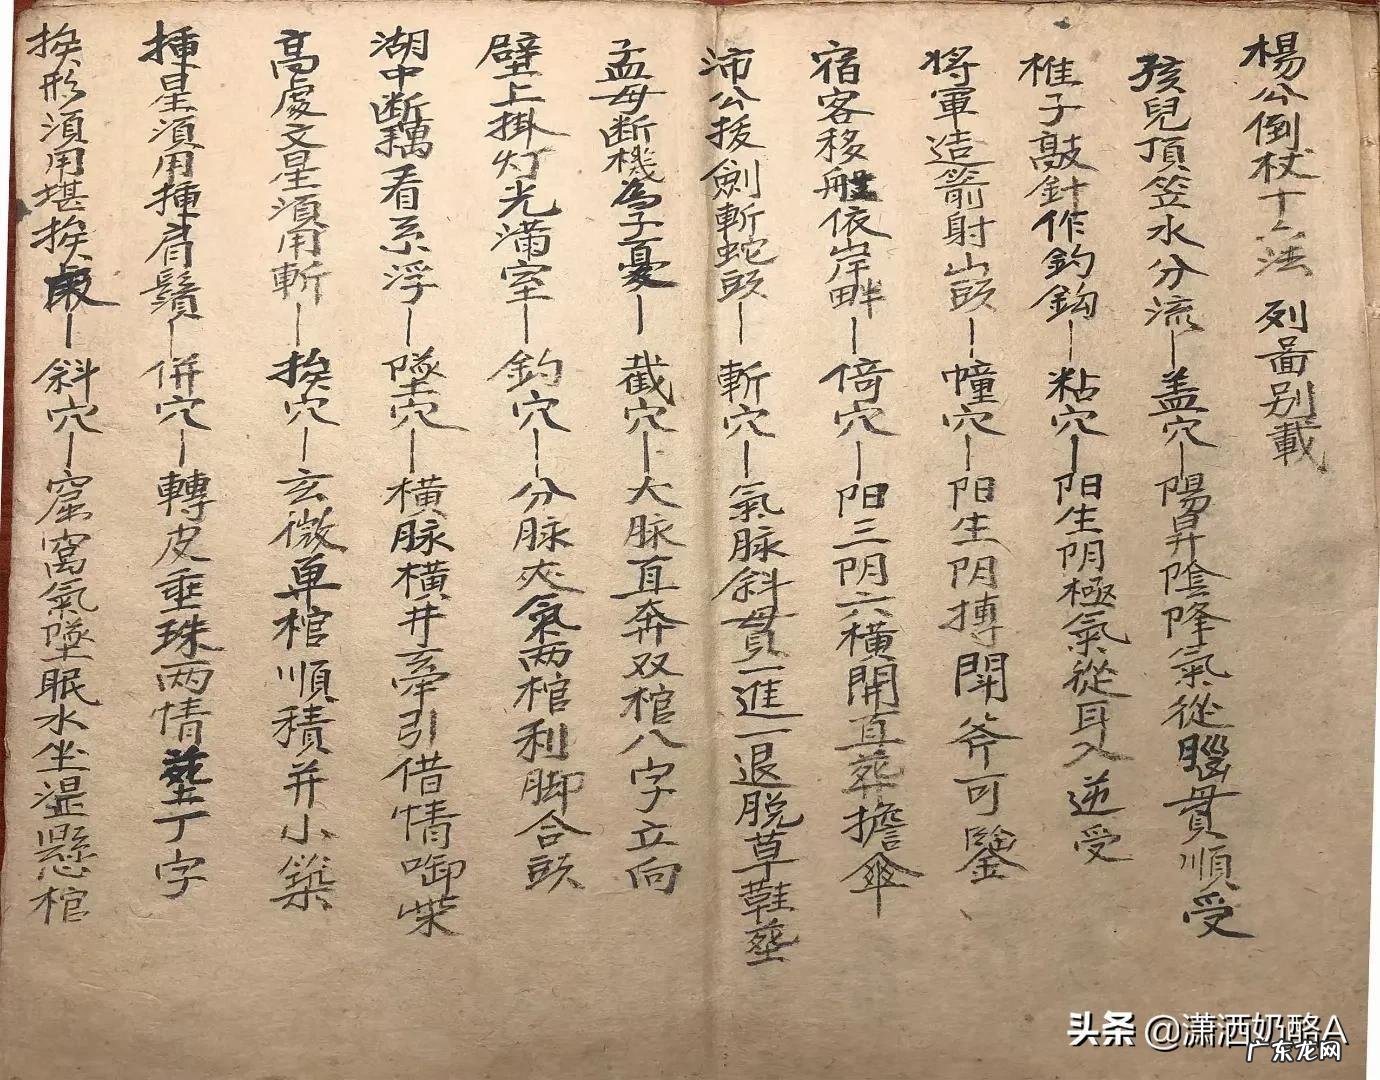 楊公倒杖十六法 列畐别載
孩兒頂笠水分流—盖穴—陽昇陰降氣從腦貫順受
椎子敲針作釣鈎—粘穴—阳生阴極氣從耳入逆受
將軍造箭射山頭—幢穴—阳生阴摶開斧可鑿
宿客移船依岸畔—倚穴—阳三阴六橫開直葬擔傘
沛公拔劍斬蛇頭—斬穴—氣脉斜貫一進一退脱草鞋塟
孟母断機為子憂—截穴—大脉直奔双棺八字立向
壁上掛灯光满室—釣穴—分脉夾氣两棺利脚合頭
湖中断藕看系浮—墜穴—橫脉橫井牽引借情啣柴
高處文星須用斬—挨穴—玄微单棺順積并小築
挿星須用挿肩鬚—併穴—轉皮垂珠两情塟丁字
挨形須用堪挨—斜穴—窟窩氣墜眠水坐湿懸棺
头条 @潇洒奶酪A
广东龙网